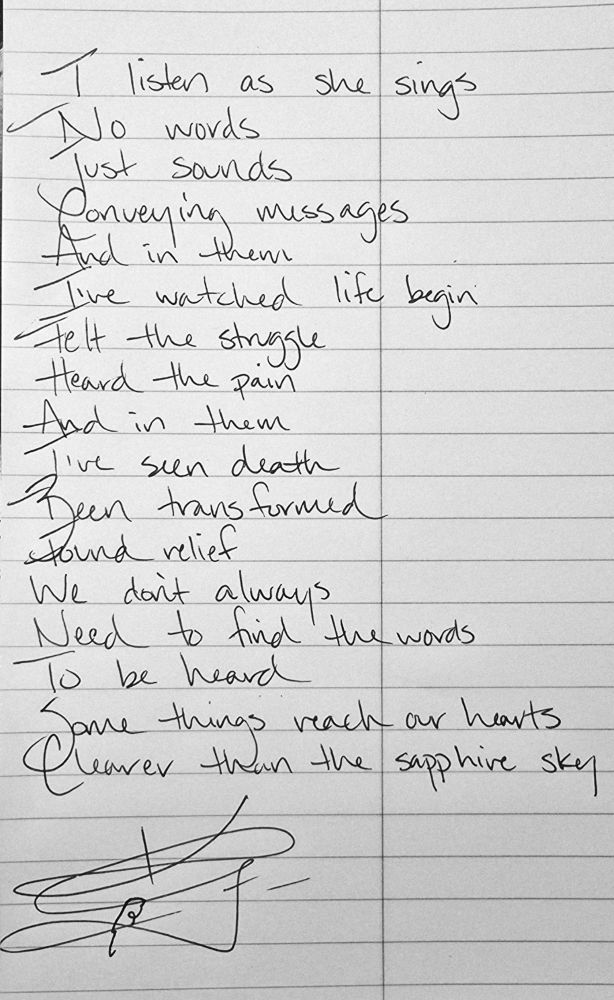 I listen as she sings
No words
Just sounds
Conveying messages
And in them
I've watched life begin
Felt the struggle
Heard the pain
And in them
I've seen death
Been transformed
Found relief
We don't always
Need to find the words
To be heard
Some things reach our hearts
Clearer than the sapphire sky